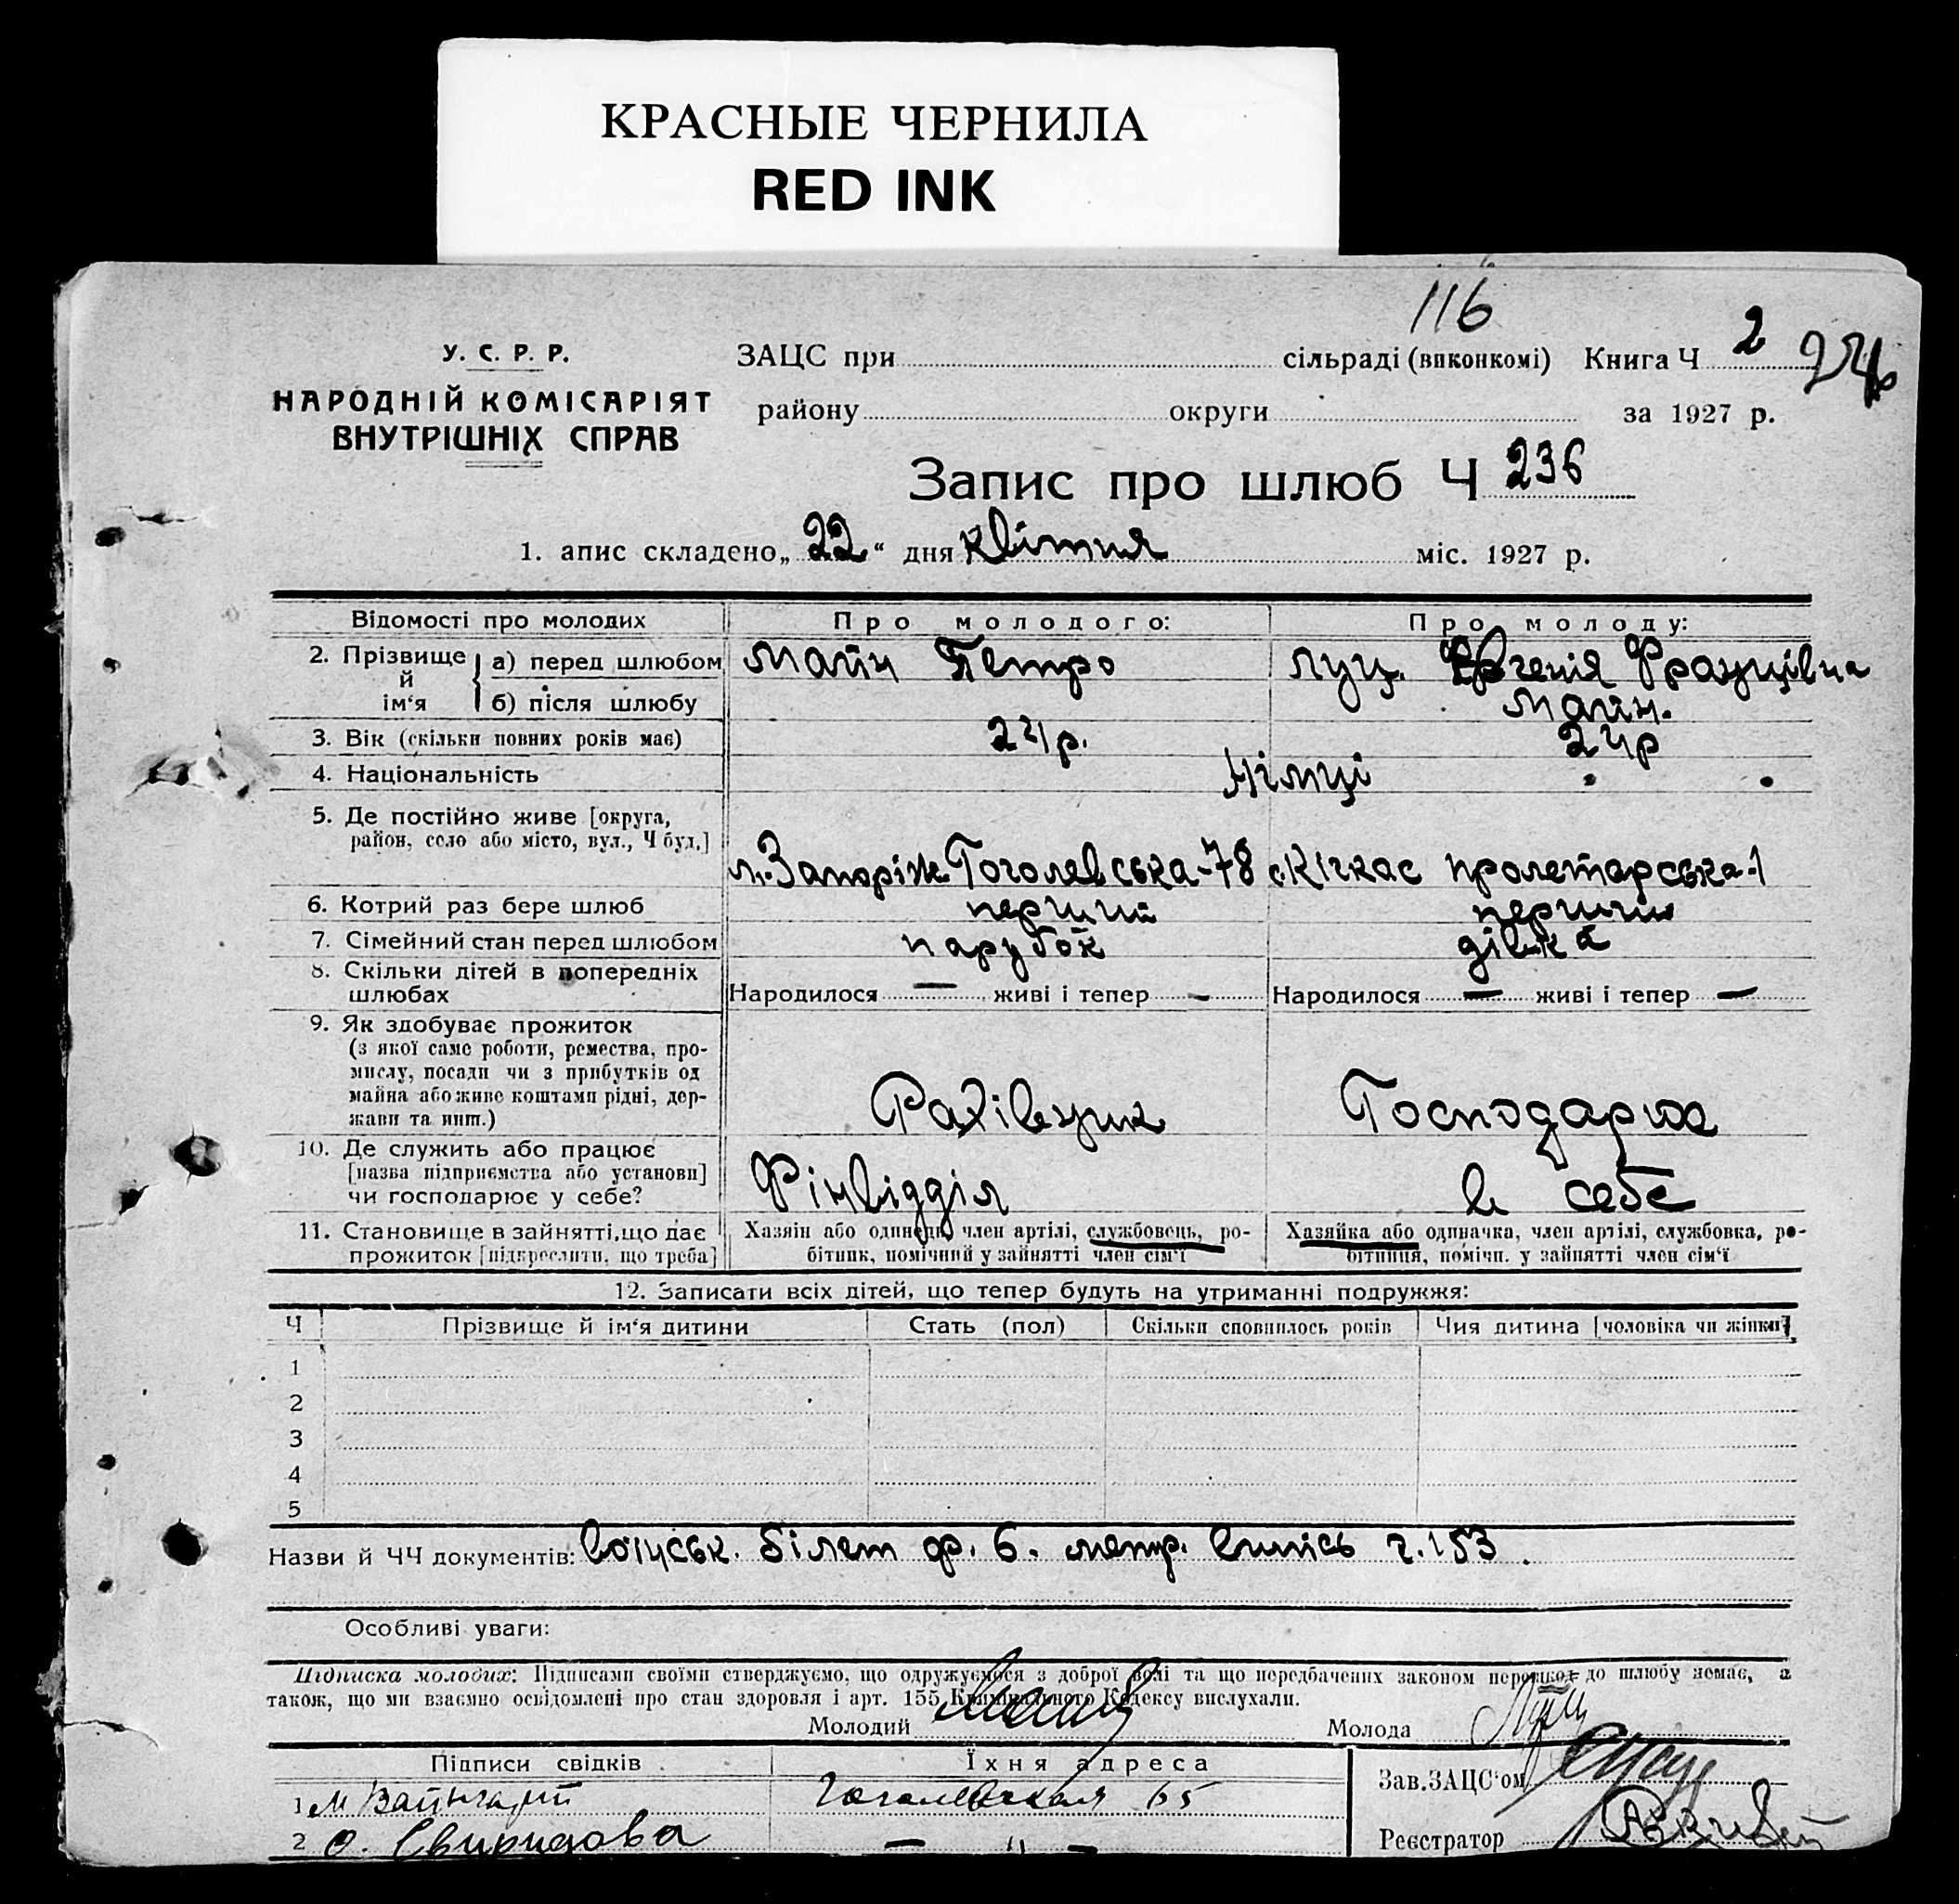 КРАСНЫЕ ЧЕРНИЛА
RED INK
116
У. С. Р. Р.
НАРОДНІЙ КОМІСАРІЯТ
ВНУТРІШНІХ СПРАВ
ЗАЦС при сільраді (виконкомі) Книга Ч 2
району округи за 1927 р.
Запис про шлюб Ч 236
1. апис складено „22“ дня квітня міс. 1927 р.
Відомості про молодих Про молодого: Про молоду:
2. Прізвище й ім‘я а) перед шлюбом Майн Петро Луц. Євгенія Францівна
б) після шлюбу Майн.
3. Вік (скільки повних років має) 24р. 24р
4. Національність Німці
5. Де постійно живе [округа,
район, село або місто, вул., Ч буд.] м. Запоріж. Гоголевська-78 с. Кічкас пролетарська-1
6. Котрий раз бере шлюб перший перший
7. Сімейний стан перед шлюбом парубок дівка
8. Скільки дітей в попередніх
шлюбах Народилося — живі і тепер — Народилося — живі і тепер —
9. Як здобуває прожиток
(з якої саме роботи, ремества, про-
мислу, посади чи з прибутків од
майна або живе коштами рідні, дер-
жави та инш.) Рахівник Господарює
10. Де служить або працює
[назва підприємства або установи]
чи господарює у себе? Фінвідділ в себе
11. Становище в зайнятті, що дає
прожиток [підкреслити, що треба]
Хазяін або одинець, член артілі, службовець, ро-
бітник, помічний у зайнятті член сім‘ї
Хазяйка або одиначка, член артілі, службовка, ро-
бітниця, помічн. у зайнятті член сім‘ї
12. Записати всіх дітей, що тепер будуть на утриманні подружжя:
Ч Прізвище й ім‘я дитини Стать (пол) Скільки сповнилось років Чия дитина [чоловіка чи жінки]
1
2
3
4
5
Назви й ЧЧ документів: Воїнськ. білет ф. 6. метр. випись ч. 153.
Особливі уваги:
Підписка молодих: Підписами своїми стверджуємо, що одружуємося з доброї волі та що передбачених законом перешкод до шлюбу немає, а
також, що ми взаємно освідомлені про стан здоровля і арт. 155 Кримінального Кодексу вислухали.
Молодий Молода
Підписи свідків Їхня адреса
1 М Вайнгарт Гоголевская 65
2 О. Свиридова — " —
Зав. ЗАЦС‘ом
Реєстратор